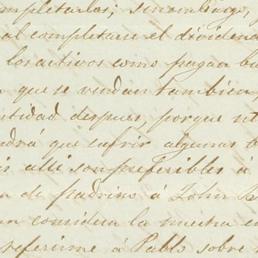 mpletarlas; sin embargo,
al completarse el dividend
los activos como pagan bu
que se vendan tambien
ntidad despues, porque
drá que sufrir algunas
alli son preferibles a
a de padrino á John B
an considera la nuestra en
referirme á Pablo sobre